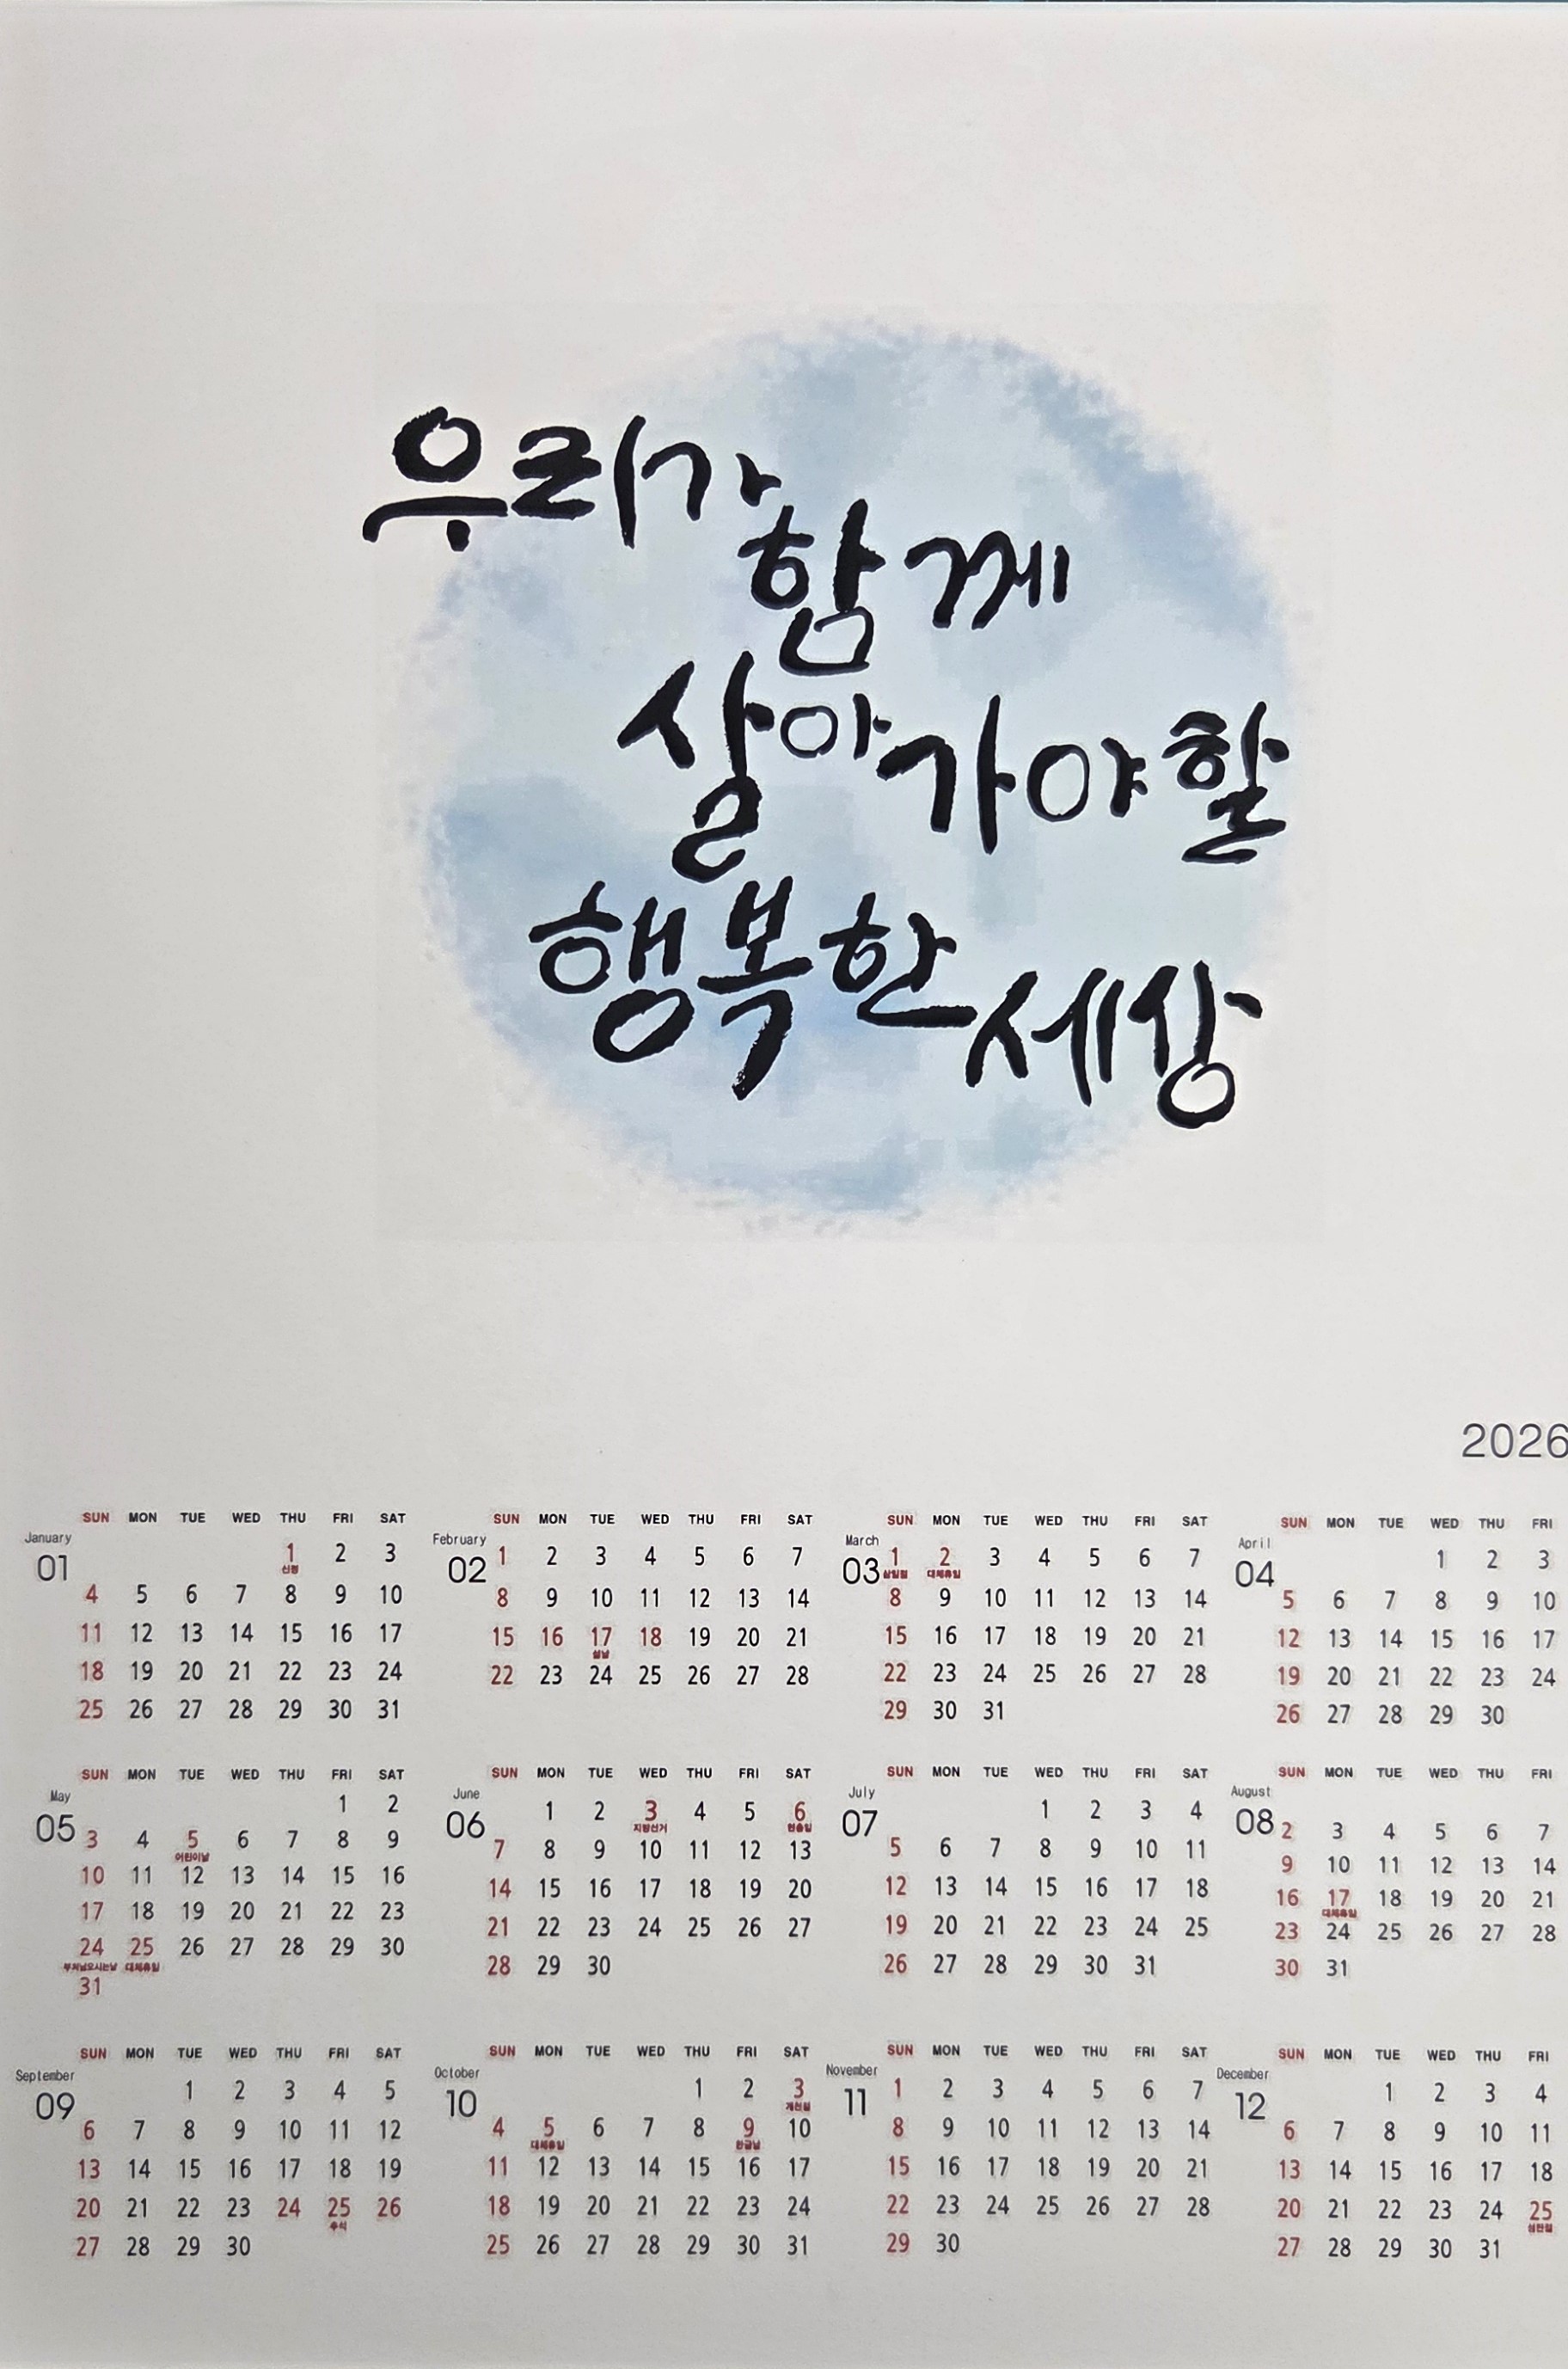 우리가
함께
살아가야할
행복한 세상
2026
January
01
SUN MON TUE WED THU FRI SAT
1 2 3
신정
4 5 6 7 8 9 10
11 12 13 14 15 16 17
18 19 20 21 22 23 24
25 26 27 28 29 30 31
February
02
SUN MON TUE WED THU FRI SAT
1 2 3 4 5 6 7
8 9 10 11 12 13 14
15 16 17 18 19 20 21
설날
22 23 24 25 26 27 28
March
03
SUN MON TUE WED THU FRI SAT
1 2 3 4 5 6 7
삼일절 대체휴일
8 9 10 11 12 13 14
15 16 17 18 19 20 21
22 23 24 25 26 27 28
29 30 31
April
04
SUN MON TUE WED THU FRI
1 2 3
5 6 7 8 9 10
12 13 14 15 16 17
19 20 21 22 23 24
26 27 28 29 30
May
05
SUN MON TUE WED THU FRI SAT
1 2
3 4 5 6 7 8 9
어린이날
10 11 12 13 14 15 16
17 18 19 20 21 22 23
24 25 26 27 28 29 30
부처님오시는날 대체휴일
31
June
06
SUN MON TUE WED THU FRI SAT
1 2 3 4 5 6
지방선거 현충일
7 8 9 10 11 12 13
14 15 16 17 18 19 20
21 22 23 24 25 26 27
28 29 30
July
07
SUN MON TUE WED THU FRI SAT
1 2 3 4
5 6 7 8 9 10 11
12 13 14 15 16 17 18
19 20 21 22 23 24 25
26 27 28 29 30 31
August
08
SUN MON TUE WED THU FRI
2 3 4 5 6 7
9 10 11 12 13 14
16 17 18 19 20 21
대체휴일
23 24 25 26 27 28
30 31
September
09
SUN MON TUE WED THU FRI SAT
1 2 3 4 5
6 7 8 9 10 11 12
13 14 15 16 17 18 19
20 21 22 23 24 25 26
추석
27 28 29 30
October
10
SUN MON TUE WED THU FRI SAT
1 2 3
개천절
4 5 6 7 8 9 10
대체휴일 한글날
11 12 13 14 15 16 17
18 19 20 21 22 23 24
25 26 27 28 29 30 31
November
11
SUN MON TUE WED THU FRI SAT
1 2 3 4 5 6 7
8 9 10 11 12 13 14
15 16 17 18 19 20 21
22 23 24 25 26 27 28
29 30
December
12
SUN MON TUE WED THU FRI
1 2 3 4
6 7 8 9 10 11
13 14 15 16 17 18
20 21 22 23 24 25
성탄절
27 28 29 30 31